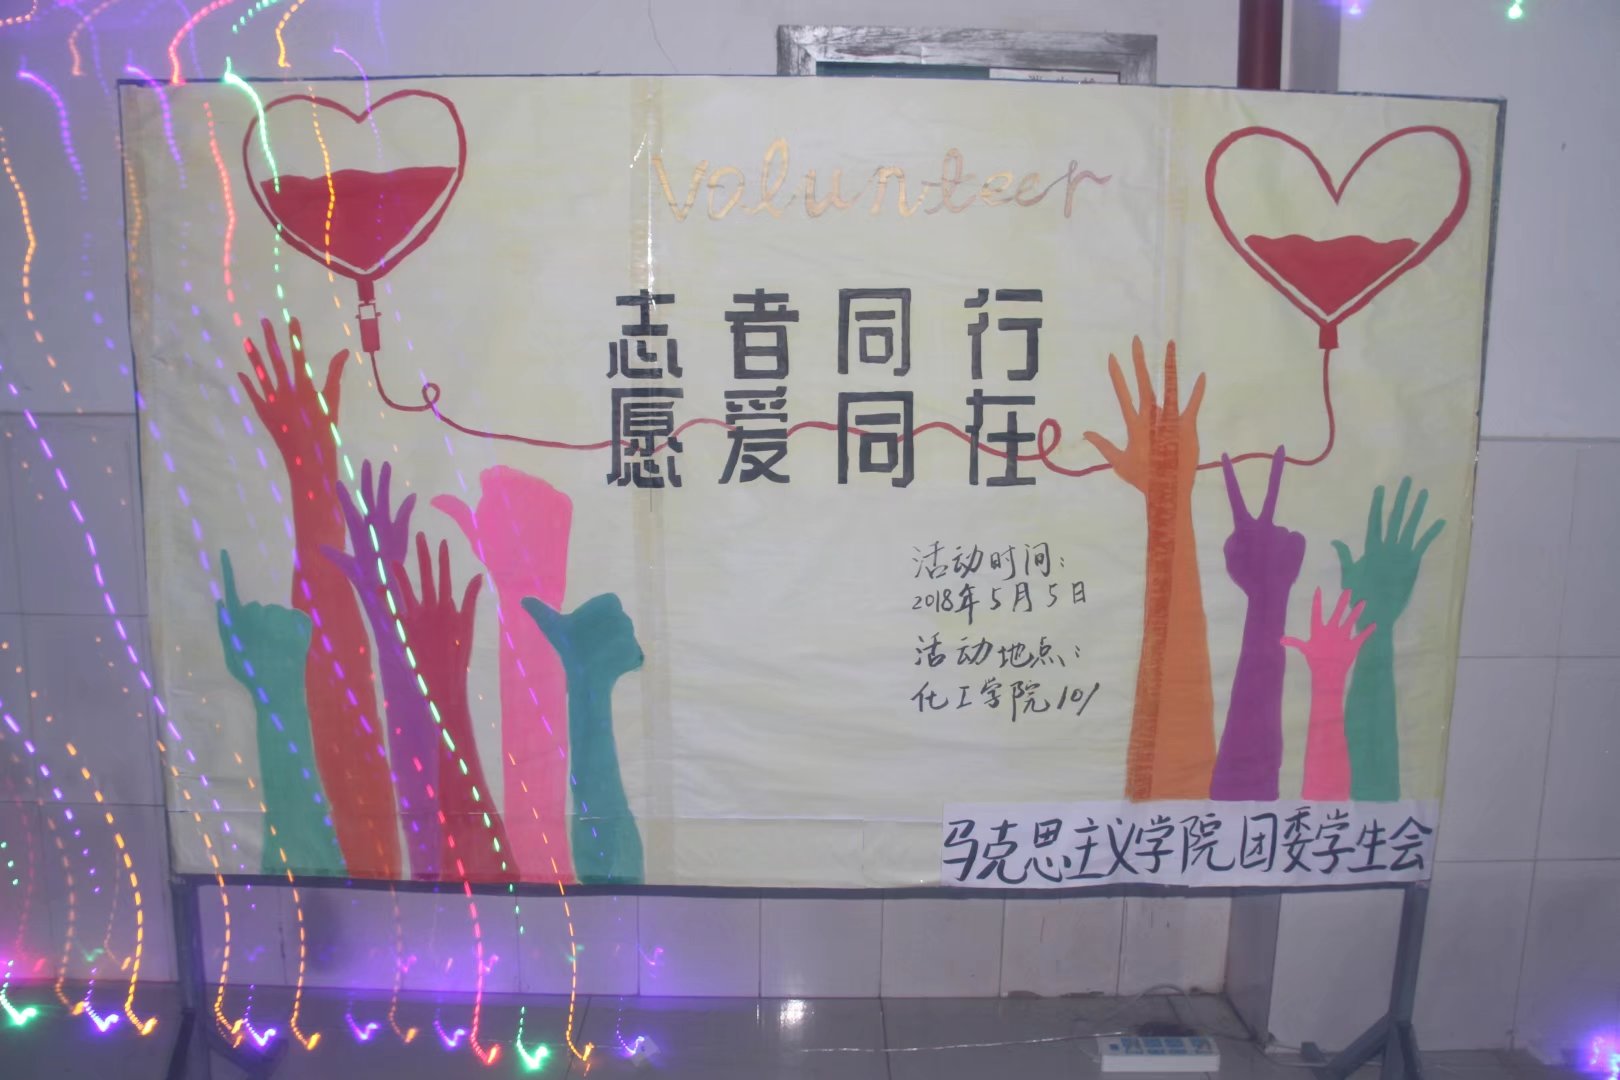 Volunteer
志者同行
愿爱同在
活动时间:
2018年5月5日
活动地点:
化工学院101
马克思主义学院团委学生会